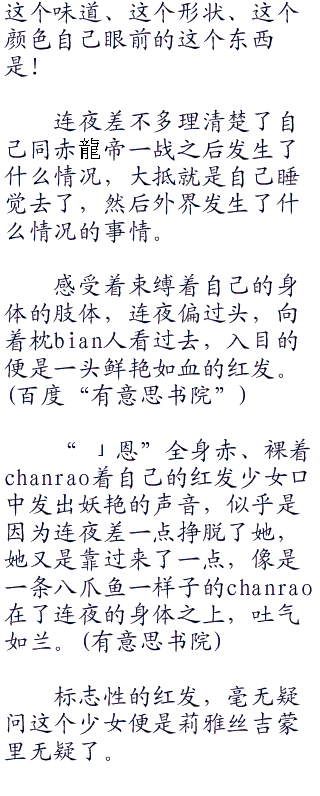 这个味道、这个形状、这个
颜色自己眼前的这个东西
是!
连夜差不多理清楚了自
己同赤龍帝一战之后发生了
什么情况，大抵就是自己睡
觉去了，然后外界发生了什
么情况的事情。
感受着束缚着自己的身
体的肢体，连夜偏过头，向
着枕bian人看过去，入目的
便是一头鲜艳如血的红发。
(百度“有意思书院”)
“「恩”全身赤、裸着
chanrao着自己的红发少女口
中发出妖艳的声音，似乎是
因为连夜差一点挣脱了她，
她又是靠过来了一点，像是
一条八爪鱼一样子的chanrao
在了连夜的身体之上，吐气
如兰。(有意思书院)
标志性的红发，毫无疑
问这个少女便是莉雅丝吉蒙
里无疑了。